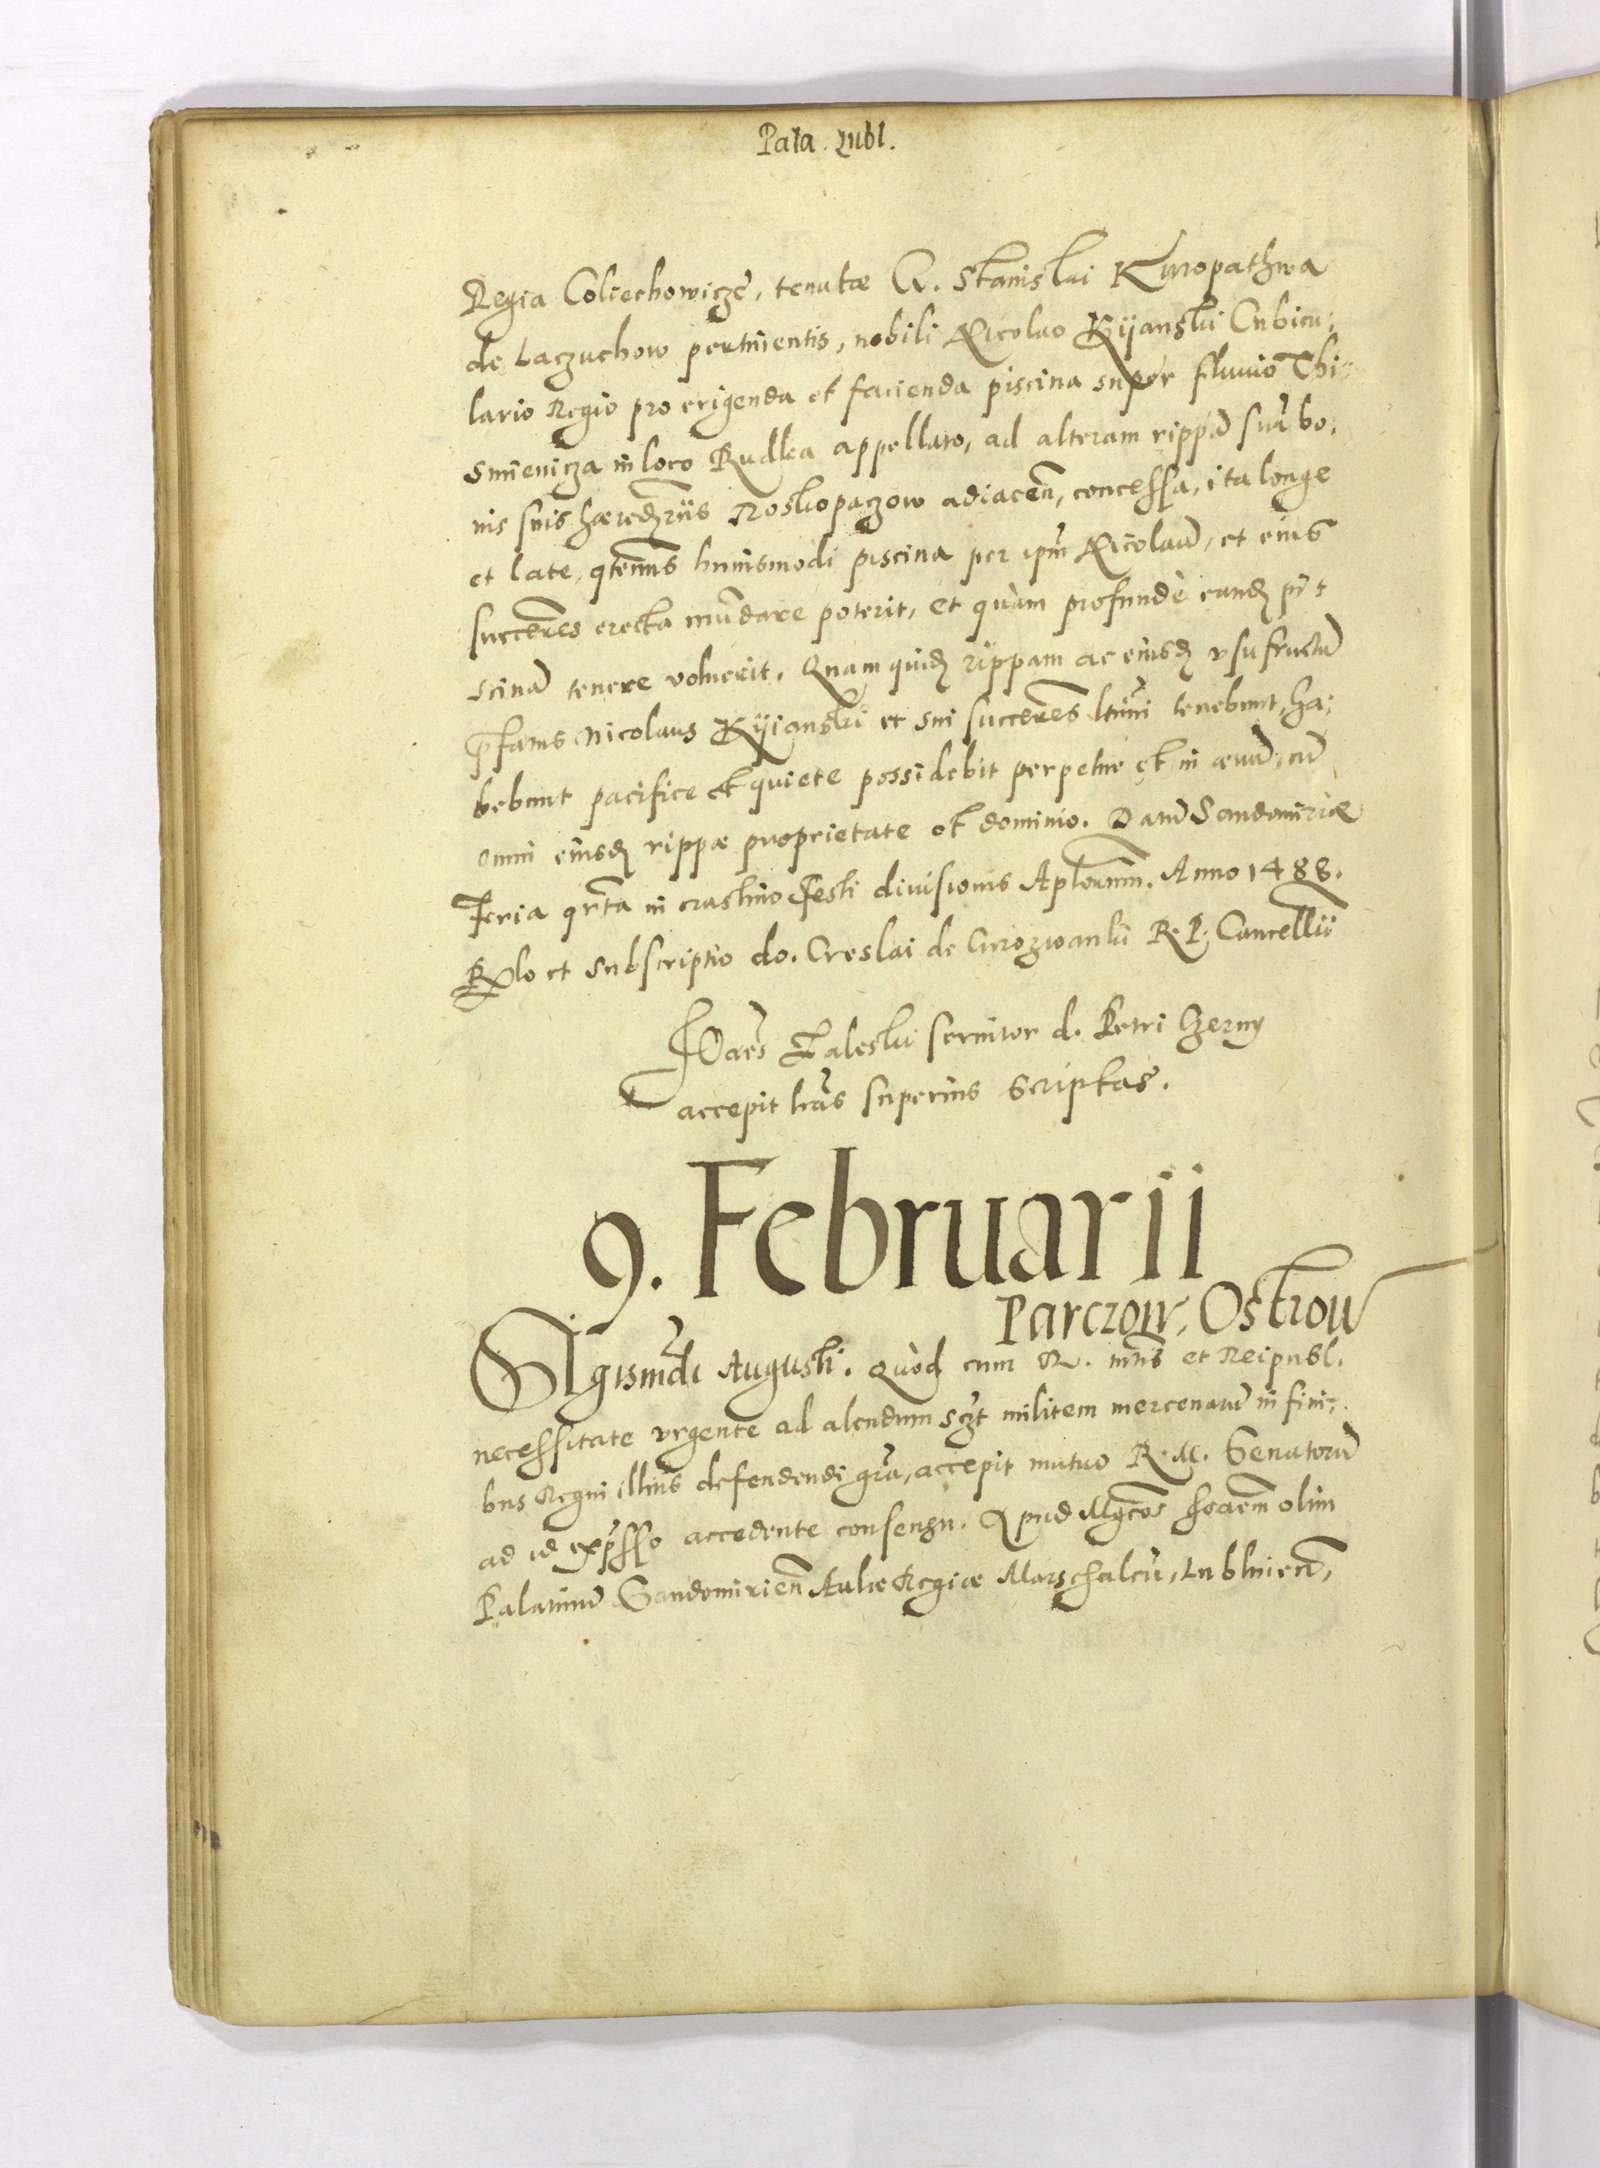 Pala. Lubl.
Regia Coliechowicze, tenutæ G. Stanislai Kuropathwa
de Laczuchow pertinentis, nobili Nicolao Kijanski Cubicu-
lario Regio pro erigenda et facienda piscina super fluuio Thi-
smienicza in loco Rudka appellato, ad alteram rippã suã bo-
nis suis hæredrijs Roskopaczow adiaceñ, concessa, ita longe
et late, qtenus huiusmodi piscina per ipm Nicolaũ, et eius
succeres erecta inũdare poterit, et quàm profundè eandẽ pi-
scinã tenere voluerit. Quam quidẽ rippam ac eiusdẽ vsufructũ
pfatus Nicolaus Kijanski et sui succeres ltimi tenebunt, ha-
bebunt pacifice et quiete possidebit perpetuo et in æuũ, cũ
omni eiusdẽ rippæ proprietate et dominio. Datũ Sandomiriæ
Feria qrta in crastino Festi diuisionis Aplorum. Anno 1488.
Rlo et subscriptio do. Creslai de Curozwanki R. P. Cancellij
Ioães Zaleski seruitor d. Petri Czerny
accepit lras superius scriptas.
9. Februarii
Parczow, Ostrow
Sigismũdi Augusti. Quòd cum R. mtis et Reipubl.
necessitate vrgente ad alendum sczt militem mercenariũ in fini-
bus Regni illius defendendi gra, accepit mutuo R. M. Senatorũ
ad id expsso accedente consensu. Apud Mgcos Ioaem olim
Palatinũ Sandomirieñ Aulæ Regiæ Marschalcũ, Lublinieñ,